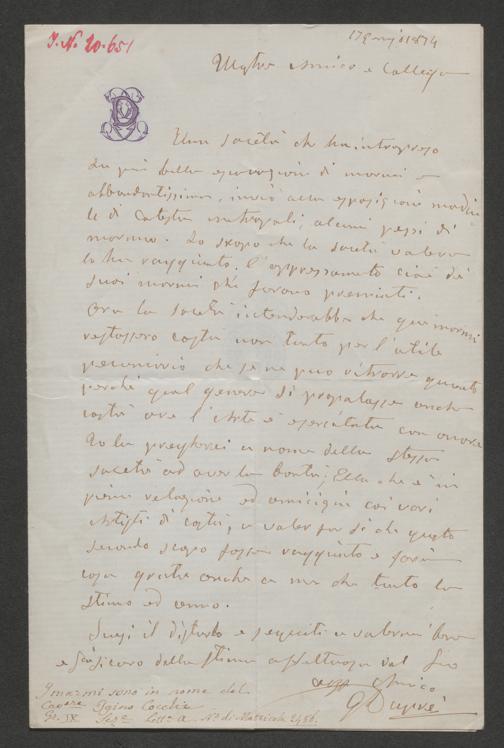 J. N. 20.651
Illustre Amico e Collega
Una società che ha intrapreso
da più delle escavazioni di marmi
abbondantissimi, inviò alla esposizione mondia
le di Cotesta metropoli, alcuni pezzi di
marmo. Lo scopo che la società voleva
lo ha raggiunto. l'apprezzamento cioè de'
suoi marmi che furono premiati.
Ora la società intenderebbe che quei marmi
restassero costà non tanto per l'utile
pecuniario che se ne può ritrarre quanto
perchè quel genere si propalasse anche
costà ove l'Arte è esercitata con onore
Io la pregherei a nome della stessa
società ad aver la bontà, Ella che è in
piena relazione ed amicizia coi vari
Artisti di costà, a voler far sì che questo
secondo scopo fosse raggiunto e farà
cosa grata anche a me che tanto la
stimo ed amo.
Scusi il disturbo e seguiti a volermi bene
e sia sicuro della stima affettuosa del Suo
Amico
G Duprè
I marmi sono in nome del
Cocchi
Gr. IX Sez.e Lett.a A. No. di Matricola 2456.